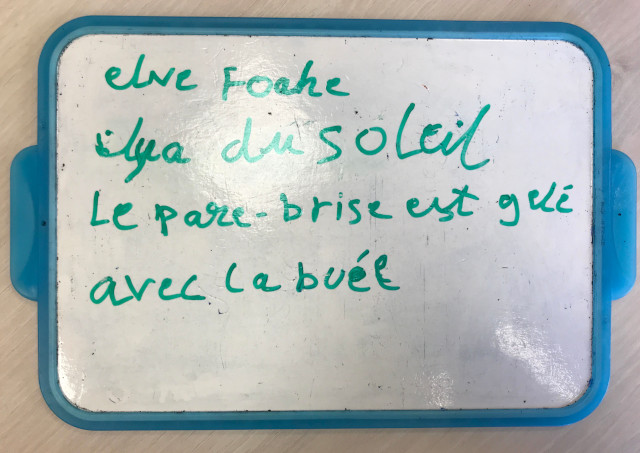 elve Foahe
ilya du soleil
Le pare-brise est gelé
avec la buée